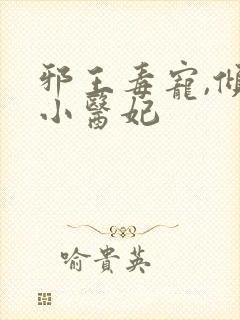 邪王毒寵,傾
小醫妃
喻貴英